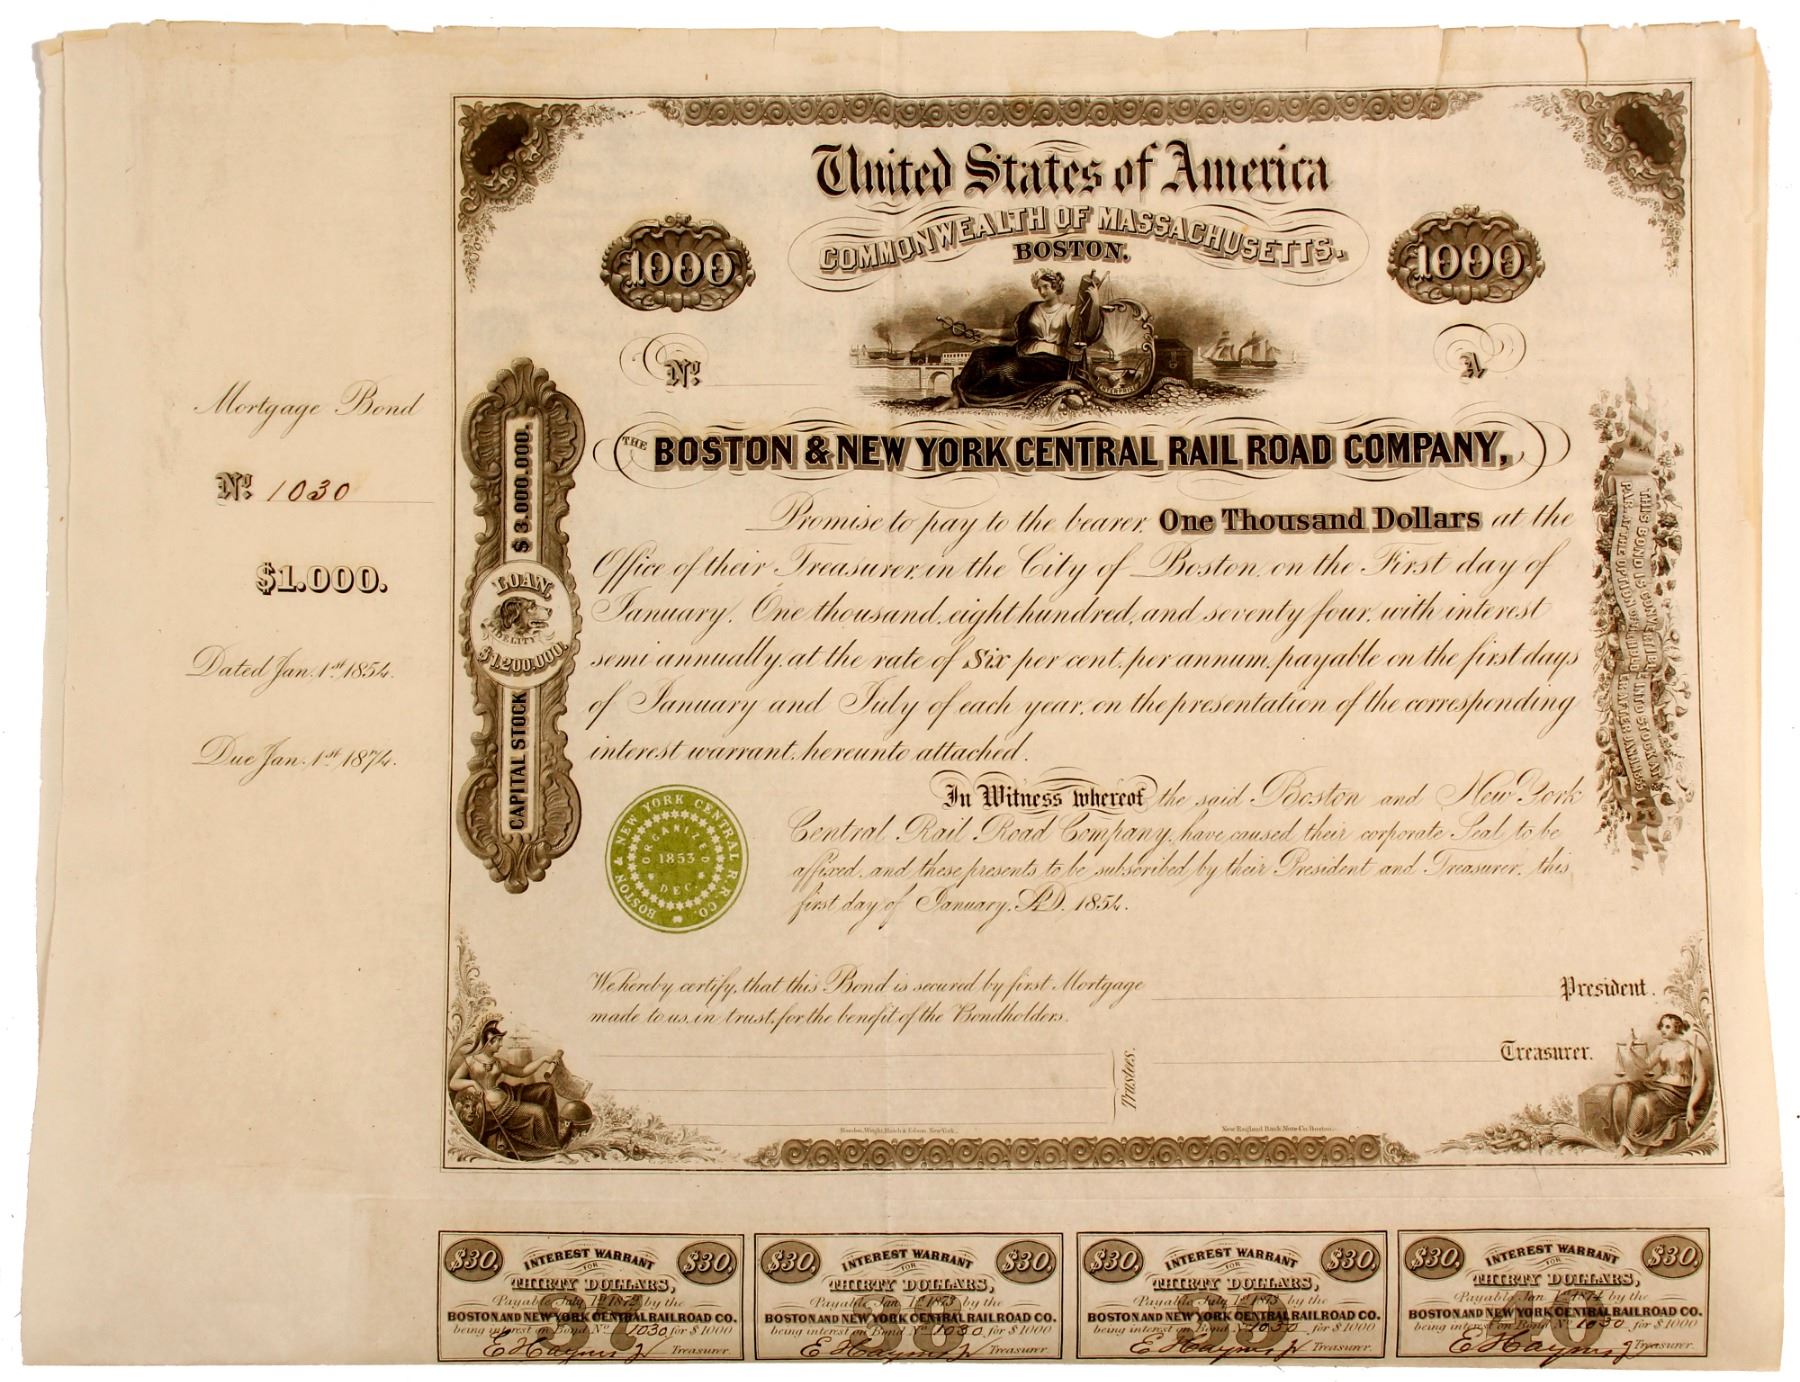 United States of America
COMMONWEALTH OF MASSACHUSETTS.
BOSTON.
1000
1000
No.
A
THE BOSTON & NEW YORK CENTRAL RAIL ROAD COMPANY,
Promise to pay to the bearer, One Thousand Dollars at the
Office of their Treasurer, in the City of Boston, on the First day of
January, One thousand, eight hundred, and seventy four, with interest
semi annually, at the rate of Six per cent, per annum, payable on the first days
of January and July of each year, on the presentation of the corresponding
interest warrant, hereunto attached.
In Witness whereof the said Boston and New York
Central Rail Road Company, have caused their corporate Seal to be
affixed, and these presents to be subscribed by their President and Treasurer, this
first day of January, A.D. 1854.
Mortgage Bond
No. 1030
$1.000.
Dated Jan. 1st 1854.
Due Jan. 1st 1874.
CAPITAL STOCK $3.000.000.
LOAN,
FIDELITY
$1.200.000.
THIS BOND IS CONVERTIBLE INTO STOCK AT
PAR, AT THE OPTION OF THE
BOSTON & NEW YORK CENTRAL R.R. CO.
ORGANIZED
1853
DEC.
We hereby certify, that this Bond is secured by first Mortgage
made to us, in trust, for the benefit of the Bondholders.
Trustees.
President.
Treasurer.
Rawdon, Wright, Hatch & Edson, New York.
New England Bank Note Co. Boston.
$30. INTEREST WARRANT $30.
FOR
THIRTY DOLLARS,
Payable July 1st 1872 by the
BOSTON AND NEW YORK CENTRAL RAILROAD CO.
being interest on Bond No. 1030 for $1000
E Haynes Jr Treasurer.
$30. INTEREST WARRANT $30.
FOR
THIRTY DOLLARS,
Payable Jan. 1st 1873 by the
BOSTON AND NEW YORK CENTRAL RAILROAD CO.
being interest on Bond No. 1030 for $1000
E Haynes Jr Treasurer.
$30. INTEREST WARRANT $30.
FOR
THIRTY DOLLARS,
Payable July 1st 1873 by the
BOSTON AND NEW YORK CENTRAL RAILROAD CO.
being interest on Bond No. 1030 for $1000
E Haynes Jr Treasurer.
$30. INTEREST WARRANT $30.
FOR
THIRTY DOLLARS,
Payable Jan. 1st 1874 by the
BOSTON AND NEW YORK CENTRAL RAILROAD CO.
being interest on Bond No. 1030 for $1000
E Haynes Jr Treasurer.